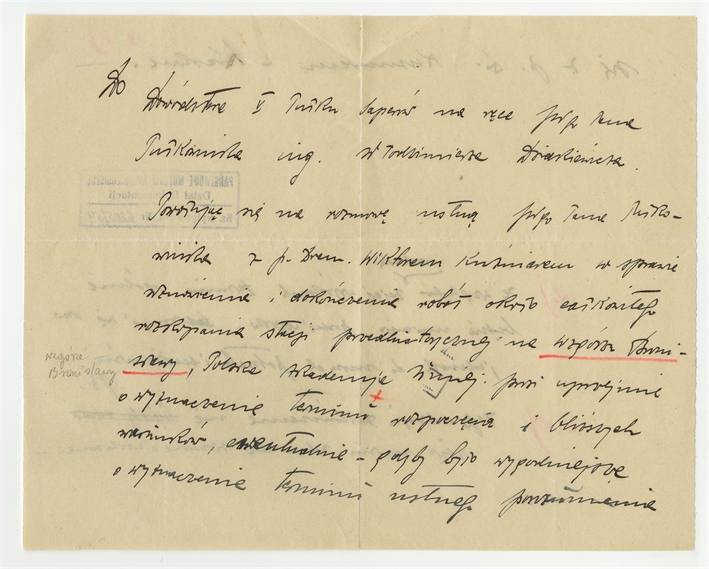 Do
Dowództwa V Pułku Saperów na ręce JWgo Pana
Pułkownika ing. Włodzimierza
Powołując się na rozmowę ustną JWgo Pana Pułko-
wnika z p. Drem. Wiktorem Kuźniarem w sprawie
wznowienia i dokończenia robót około całkowitego
rozkopania stacji przedhistorycznej na wzgórzu Broni-
sławy, Polska Akademja Umiej. prosi uprzejmie
o wyznaczenie terminu rozpoczęcia i bliższych
warunków, ewentualnie – gdyby było wygodniejsze
o wyznaczenie terminu ustnego porozumienia
wzgórze
Bronisławy